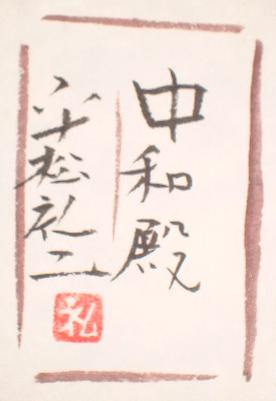 中和殿
平松礼二
礼